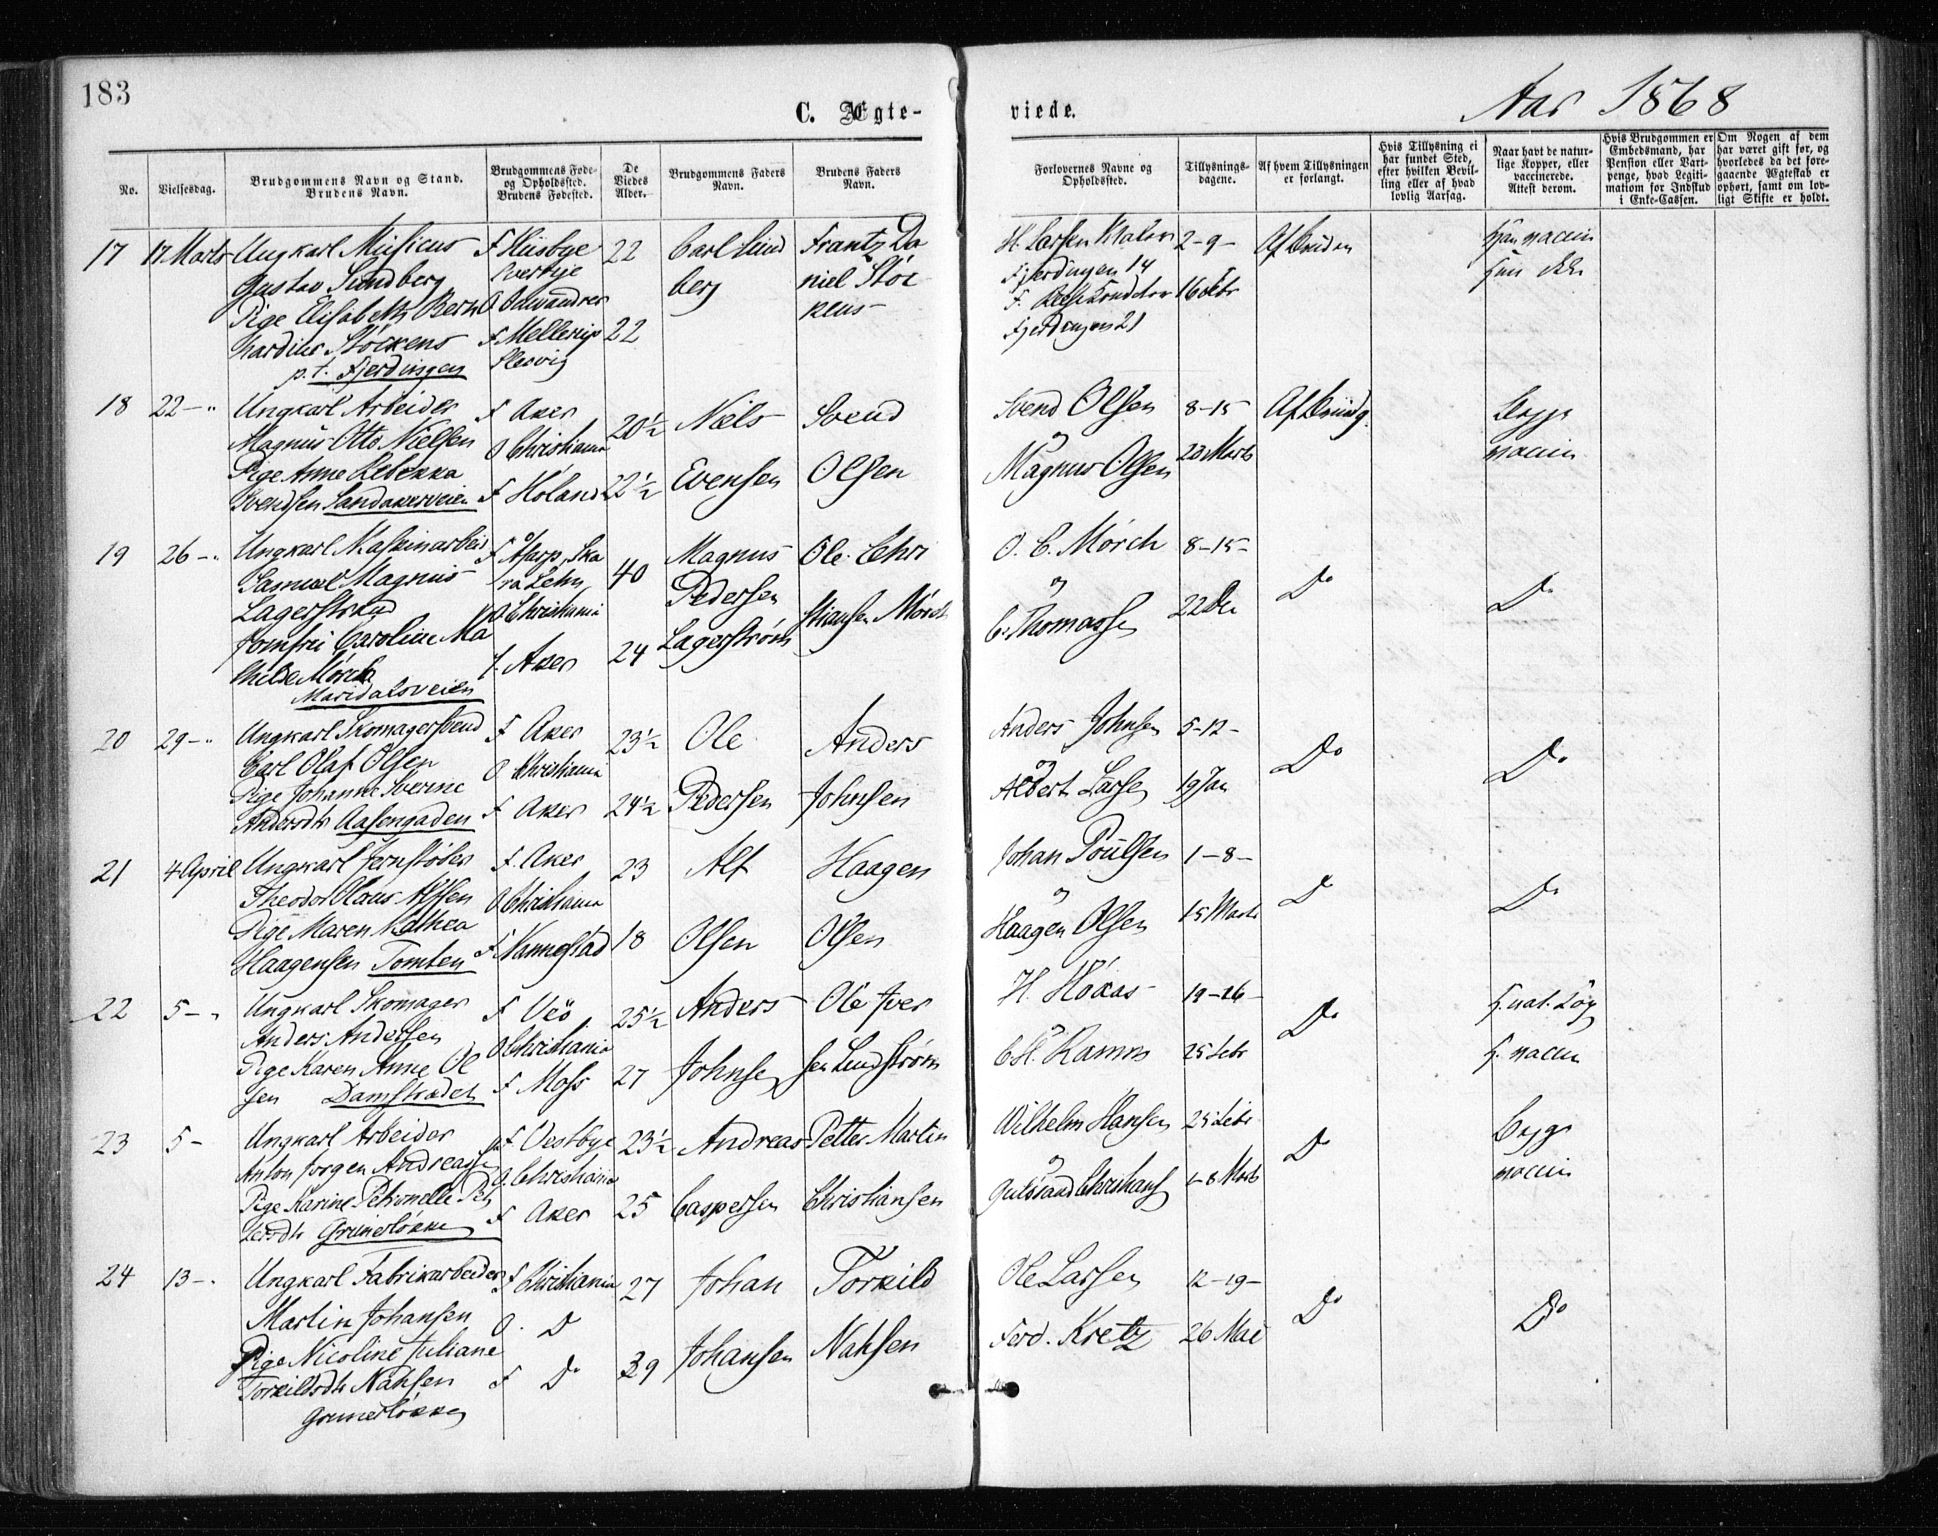 183
C. Ægte-
viede.
Aar 1868
No.
Vielsesdag.
Brudgommens Navn og Stand.
Brudens Navn.
Brudgommens Føde-
og Opholdssted.
Brudens Fødested.
De
Viedes
Alder.
Brudgommens Faders
Navn.
Brudens Faders
Navn.
Forlovernes Navne og
Opholdssted.
Tillysnings-
dagene.
Af hvem Tillysningen
er forlangt.
Hvis Tillysning ei
har fundet Sted,
efter hvilken Bevil-
ling eller af hvad
lovlig Aarsag.
Naar havt de natur-
lige Kopper, eller
vaccinerede.
Attest derom.
Hvis Brudgommen er
Embedsmand, har
Pension eller Vart-
penge, hvad Legiti-
mation for Indskud
i Enke-Cassen.
Om Nogen af dem
har været gift før, og
hvorledes da det fore-
gaaende Ægteskab er
ophørt, samt om lov-
ligt Skifte er holdt.
17
17 Marts
Ungkarl Musicus
Gustav Lundberg
Pige Elisabeth Bern
hardine Stöckens
p. t. Fjerdingen
F Husbye
O Udvandrer
F Mellerup
Slesvig
22
22
Carl Lund
berg
Frantz Da
niel Stöc
kens
H. Larsen Maler
Fjerdingen 14
Fjerdingen 21
2-9-
16 Febr
Af Bruden
Han vaccin
Hun ikke
18
22 - "
Ungkarl Arbeider
Magnus Otto Nielsen
Pige Anne Rebekka
Svendsen Sandakerveien
F Aker
O Christiania
F Höland
20½
22½
Niels
Evensen
Svend
Olsen
Svend Olsen
og
Magnus Olsen
8-15
23 Marts
Af Brudg.
Begge
vaccin
19
26 - "
Ungkarl Maskinarbeid
Samuel Magnus
Lagerström
Jomfru Caroline Ma
thilde Mörch
Maridalsveien
F Åsarp, Ska
ra Lehn,
O Christiania
F. Aker
40
24
Magnus
Pedersen
Lagerström
Ole Chri
stiansen Mörch
O. C. Mörch
og
C. Thomassen
8-15-
22 De
Do
Do
20
29 - "
Ungkarl Skomagersvend
Carl Olaf Olsen
Pige Johanne Sverine
Andersdtr Aasengaden
F Aker
O Christiania
F Aker
23½
24½
Ole
Pedersen
Anders
Johnsen
Anders Johnsen
og
Albert Larsen
5-12-
19 Jan
Do
Do
21
4 April
Ungkarl Jernstöber
Theodor Olaus Alfsen
Pige Maren Mathea
Haagensen Tomten
F. Aker
O Christiania
F Nannestad
23
18
Alf
Olsen
Haagen
Olsen
Johan Poulsen
og
Haagen Olsen
1-8-
15 Marts
Do
Do
22
5 - "
Ungkarl Skomager
Anders Andersen
Pige Karen Anne Ol
sen Damstrædet
F Veö
O Christiania
F Moss
25½
27
Anders
Johnsen
Ole Iver
sen Lundström
H. Höxaas
og
C. H. Ramm
19-26-
25 Febr
Do
H. nat. Kop
H. vaccin
23
5 -
Ungkarl Arbeider
Anton Jörgen Andreassen
Pige Karine Petronelle Pet
tersdtr Grünerlökken
F Vestbye
O. Christiania
F Aker
23½
25
Andreas
Caspersen
Petter Martin
Christiansen
Wilhelm Hansen
og
Gulbrand Christians
23 Febr
1-8 Marts
Do
Begge
vaccin
24
13 - "
Ungkarl Fabrikarbeider
Martin Johansen
Pige Nicoline Juliane
Torkildsdtr Nahsen
Grünerlökken
F Christiania
O. D
F Do
27
39
Johan
Johansen
Torkild
Nahsen
Ole Larsen
Ferd. Kretz
12-19-
26 Mai
Do
Do